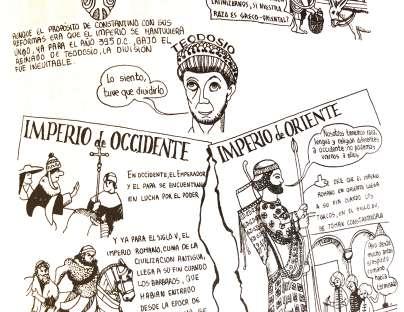 LATINIZARNOS, SI NUESTRA
RAZA ES GRECO-ORIENTAL?
AUNQUE EL PROPÓSITO DE CONSTANTINO CON SUS
REFORMAS ERA QUE EL IMPERIO SE MANTUVIERA
UNIDO, YA PARA EL AÑO 395 D.C., BAJO EL
REINADO DE TEODOSIO, LA DIVISIÓN
FUE INEVITABLE.
TEODOSIO
Lo siento,
tuve que dividirlo
IMPERIO de OCCIDENTE
EN OCCIDENTE, EL EMPERADOR
Y EL PAPA SE ENCUENTRAN
EN LUCHA POR EL PODER
Y YA PARA EL SIGLO V, EL
IMPERIO ROMANO, CUNA DE LA
CIVILIZACIÓN ANTIGUA,
LLEGA A SU FIN CUANDO
LOS BARBAROS, QUE
HABÍAN ENTRADO
DESDE LA EPOCA DE
SE
IMPERIO de ORIENTE
Nosotros tenemos raza,
lengua y religión diferente
a occidente no podemos
unirnos a ellos.
SE DICE QUE EL IMPERIO
ROMANO EN ORIENTE LLEGA
A SU FIN CUANDO LOS
TURCOS, EN EL SIGLO XV,
SE TOMAN CONSTANTINOPLA
Aquí desde
mucho antes
el Imperio
romano
había
terminado